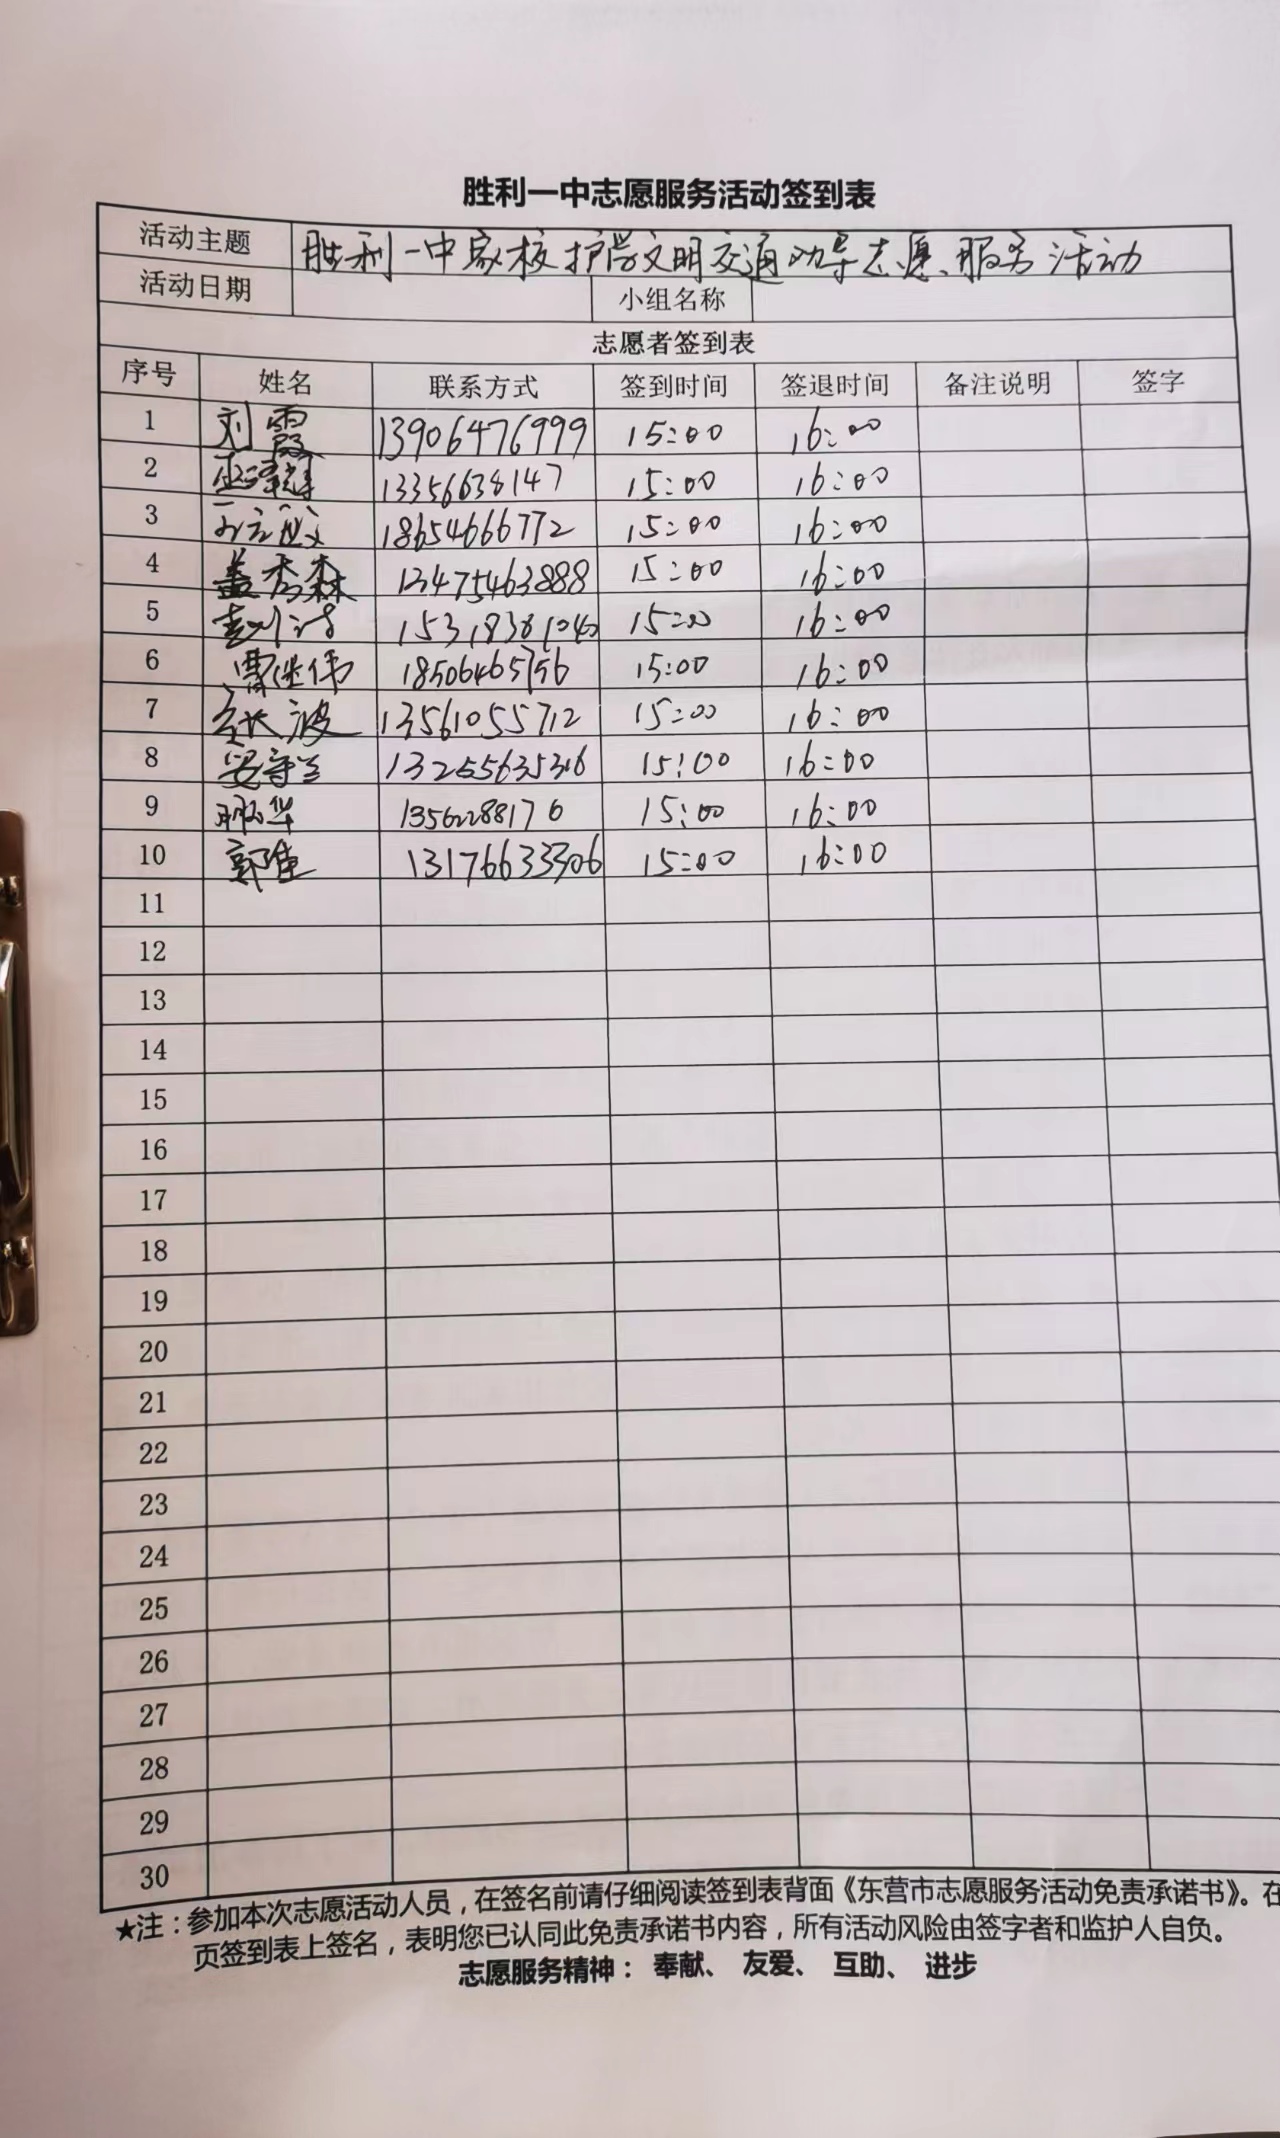 胜利一中志愿服务活动签到表
活动主题 胜利一中家校护学文明交通劝导志愿服务活动
活动日期 小组名称
志愿者签到表
序号 姓名 联系方式 签到时间 签退时间 备注说明 签字
1 刘霞 13906476999 15:00 16:00
2 13356638147 15:00 16:00
3 18654666772 15:00 16:00
4 盖秀森 13475463888 15:00 16:00
5 15:00 16:00
6 曹继伟 18506465756 15:00 16:00
7 13561055712 15:00 16:00
8 安守兰 13255635316 15:00 16:00
9 13562288176 15:00 16:00
10 郭佳 13176633306 15:00 16:00
11
12
13
14
15
16
17
18
19
20
21
22
23
24
25
26
27
28
29
30
★注：参加本次志愿活动人员，在签名前请仔细阅读签到表背面《东营市志愿服务活动免责承诺书》。在
页签到表上签名，表明您已认同此免责承诺书内容，所有活动风险由签字者和监护人自负。
志愿服务精神： 奉献、 友爱、 互助、 进步